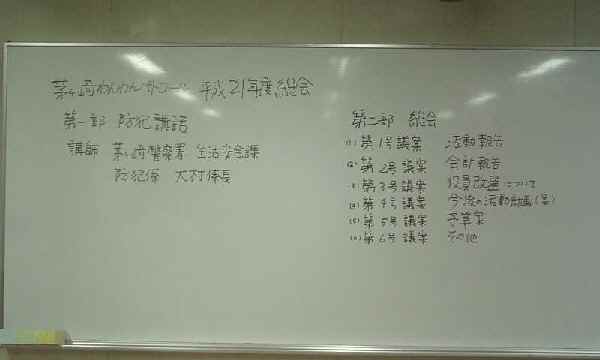 茅ヶ崎わんわんパトロール 平成21年度総会
第一部 防犯講話
講師 茅ヶ崎警察署 生活安全課
防犯係 大村係長
第二部 総会
(1) 第1号議案 活動報告
(2) 第2号議案 会計報告
(3) 第3号議案 役員改選について
(4) 第4号議案 今後の活動計画(案)
(5) 第5号議案 予算案
(6) 第6号議案 その他